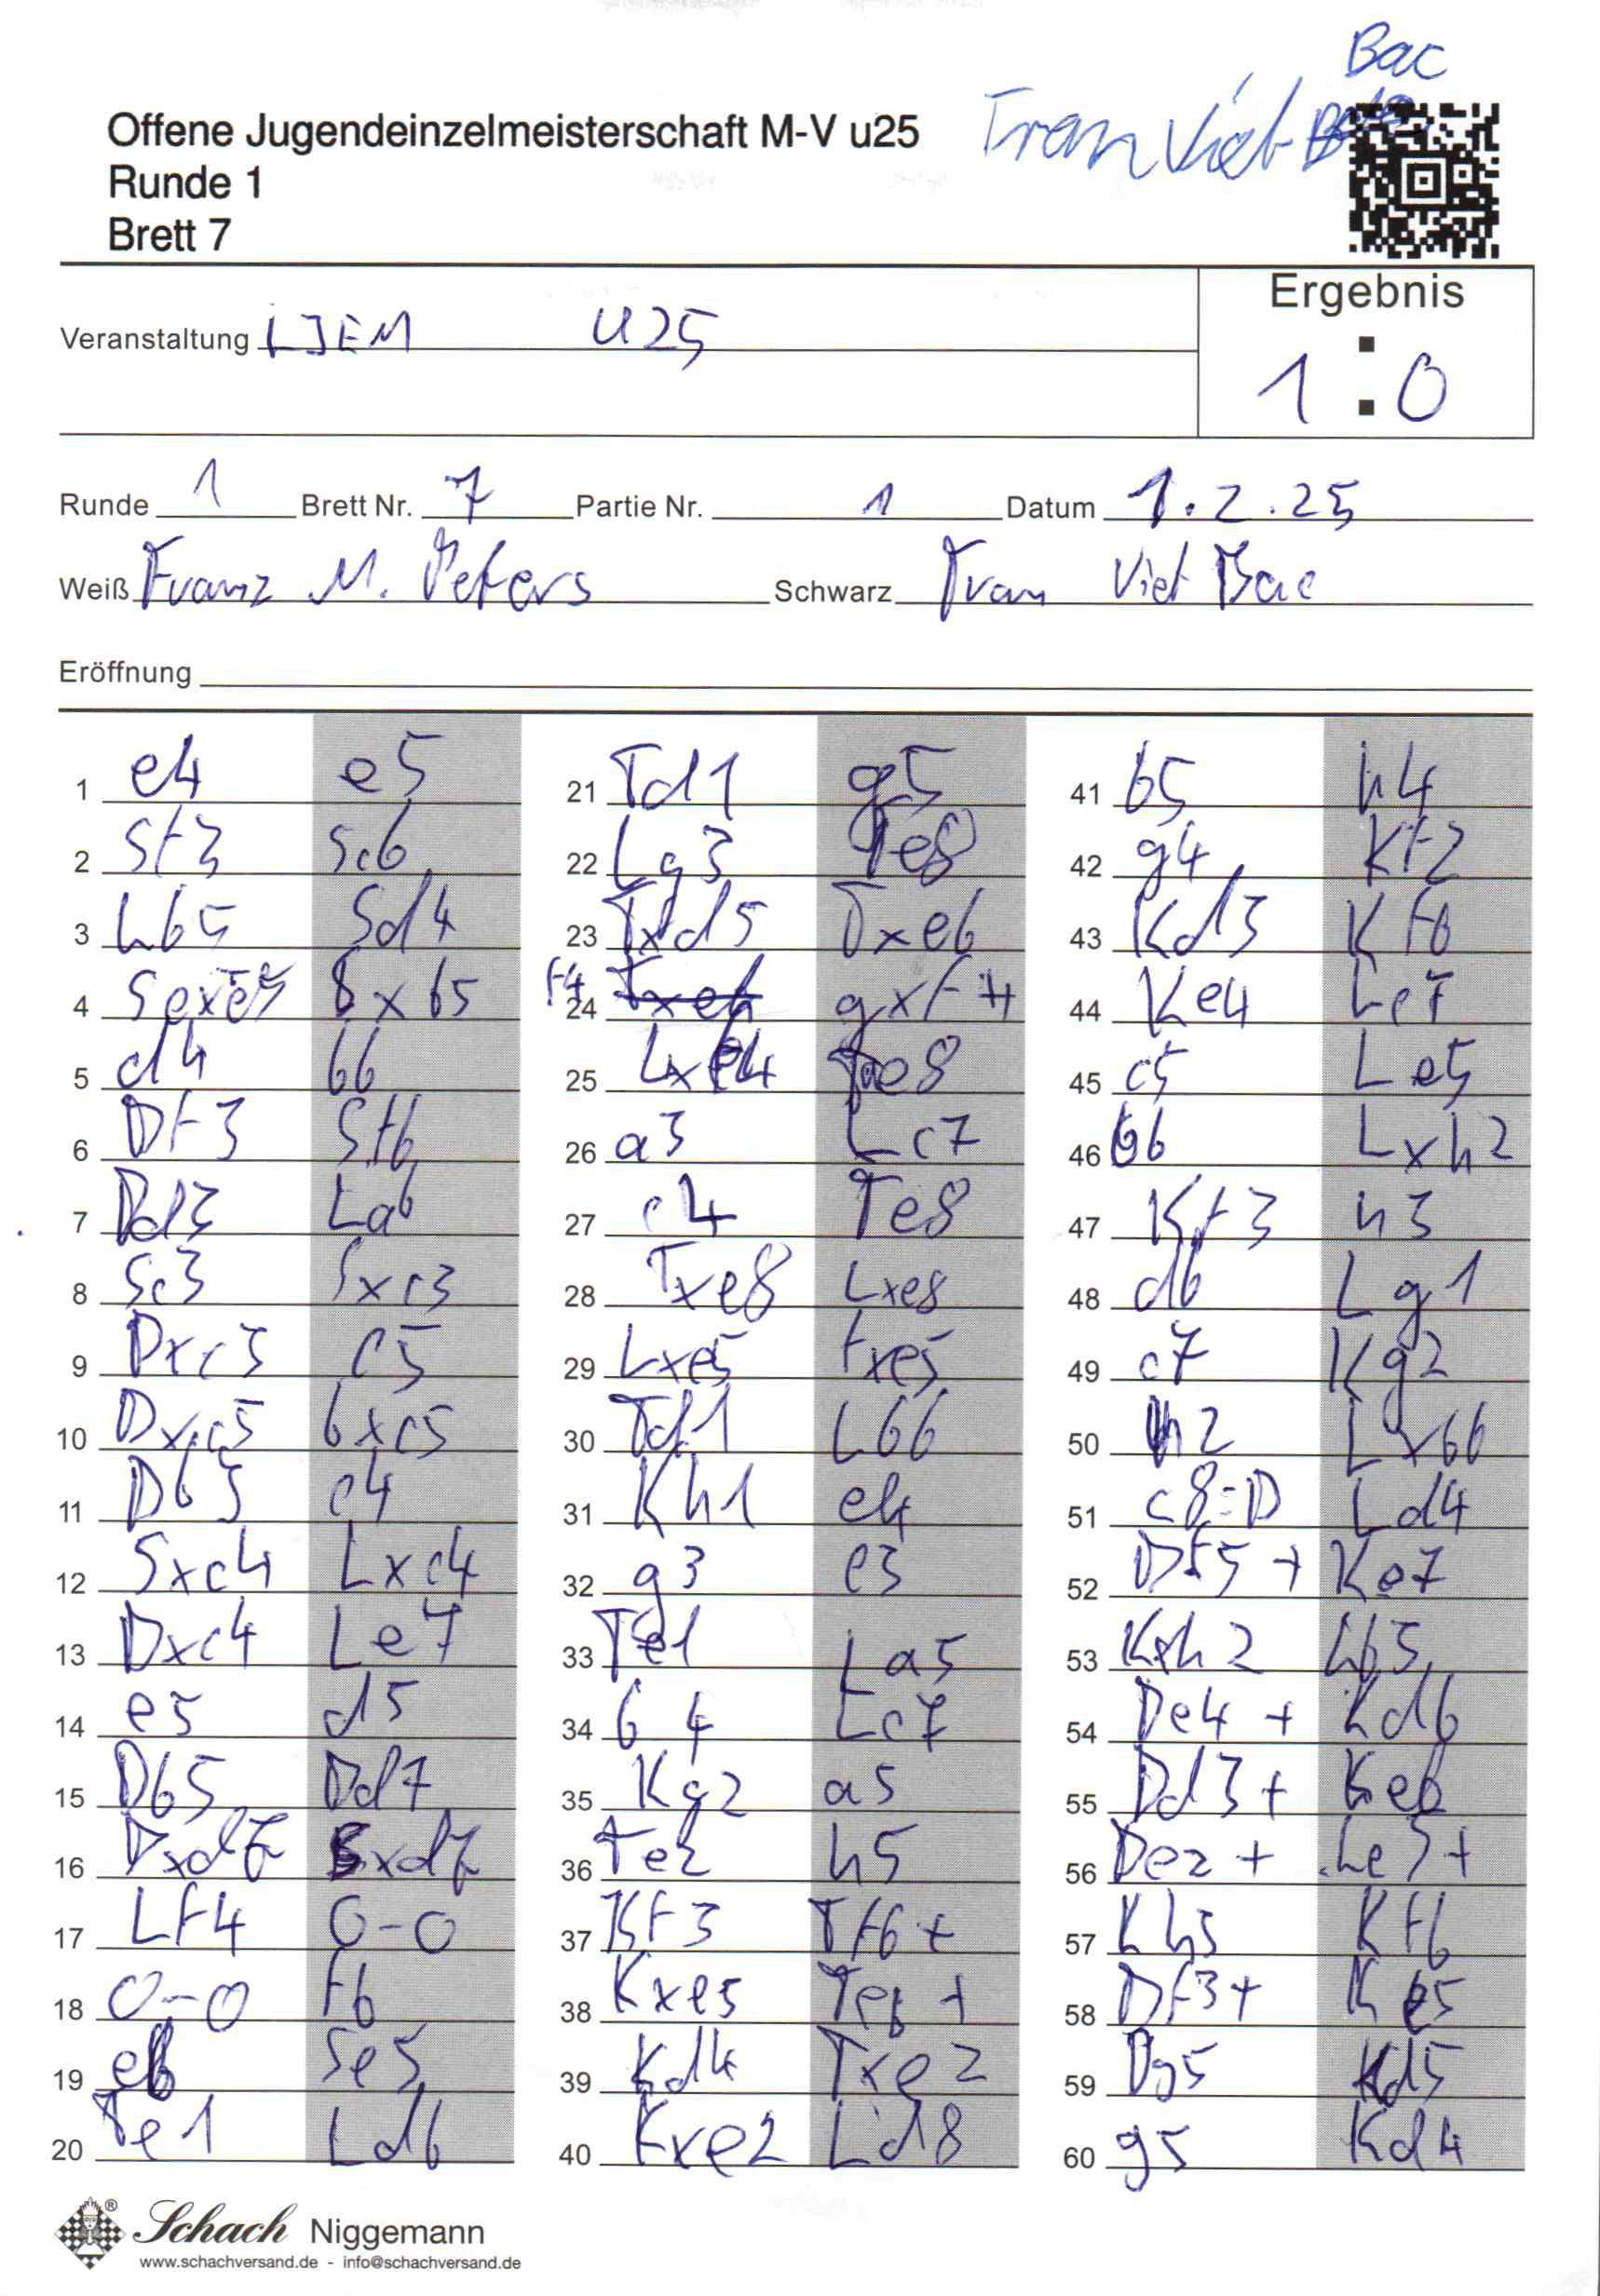 Bac
Tran Viet
Offene Jugendeinzelmeisterschaft M-V u25
Runde 1
Brett 7
Ergebnis
1 : 0
Veranstaltung LJEM U25
Runde 1 Brett Nr. 7 Partie Nr. 1 Datum 1.2.25
Weiß Franz M. Peters Schwarz Tran Viet Bac
Eröffnung
1 e4 e5
2 Sf3 Sc6
3 Lb5 Sd4
4 Sexe5 Sxb5
5 d4 b6
6 Df3 Sf6
7 Dd3 La6
8 Sc3 Sxc3
9 Dxc3 c5
10 Dxc5 bxc5
11 Db5 c4
12 Sxc4 Lxc4
13 Dxc4 Le7
14 e5 d5
15 Db5 Dd7
16 Dxd7 Sxd7
17 Lf4 0-0
18 0-0 f6
19 e6 Se5
20 Te1 Ld6
21 Td1 g5
22 Lg3 Te8
23 Txd5 Txe6
24 f4 gxf4
25 Lxf4 Te8
26 a3 Lc7
27 c4 Te8
28 Txe8 Lxe8
29 Lxe5 fxe5
30 Td1 Lb6
31 Kh1 e4
32 g3 e3
33 Te1 La5
34 b4 Lc7
35 Kg2 a5
36 Te2 h5
37 Kf3 Tf6+
38 Kxe3 Te6+
39 Kd4 Txe2
40 Kxe2 Ld8
41 b5 h4
42 g4 Kf7
43 Kd3 Kf6
44 Ke4 Lc7
45 c5 Le5
46 b6 Lxh2
47 Kf3 h3
48 d6 Lg1
49 c7 Kg2
50 h2 Lxb6
51 c8=D Ld4
52 Df5+ Ke7
53 Kxh2 Lb5
54 De4+ Kd6
55 Dd3+ Ke6
56 De2+ Le5+
57 Kh3 Kf6
58 Df3+ Ke5
59 Dg5 Kd5
60 g5 Kd4
Schach Niggemann
www.schachversand.de - info@schachversand.de